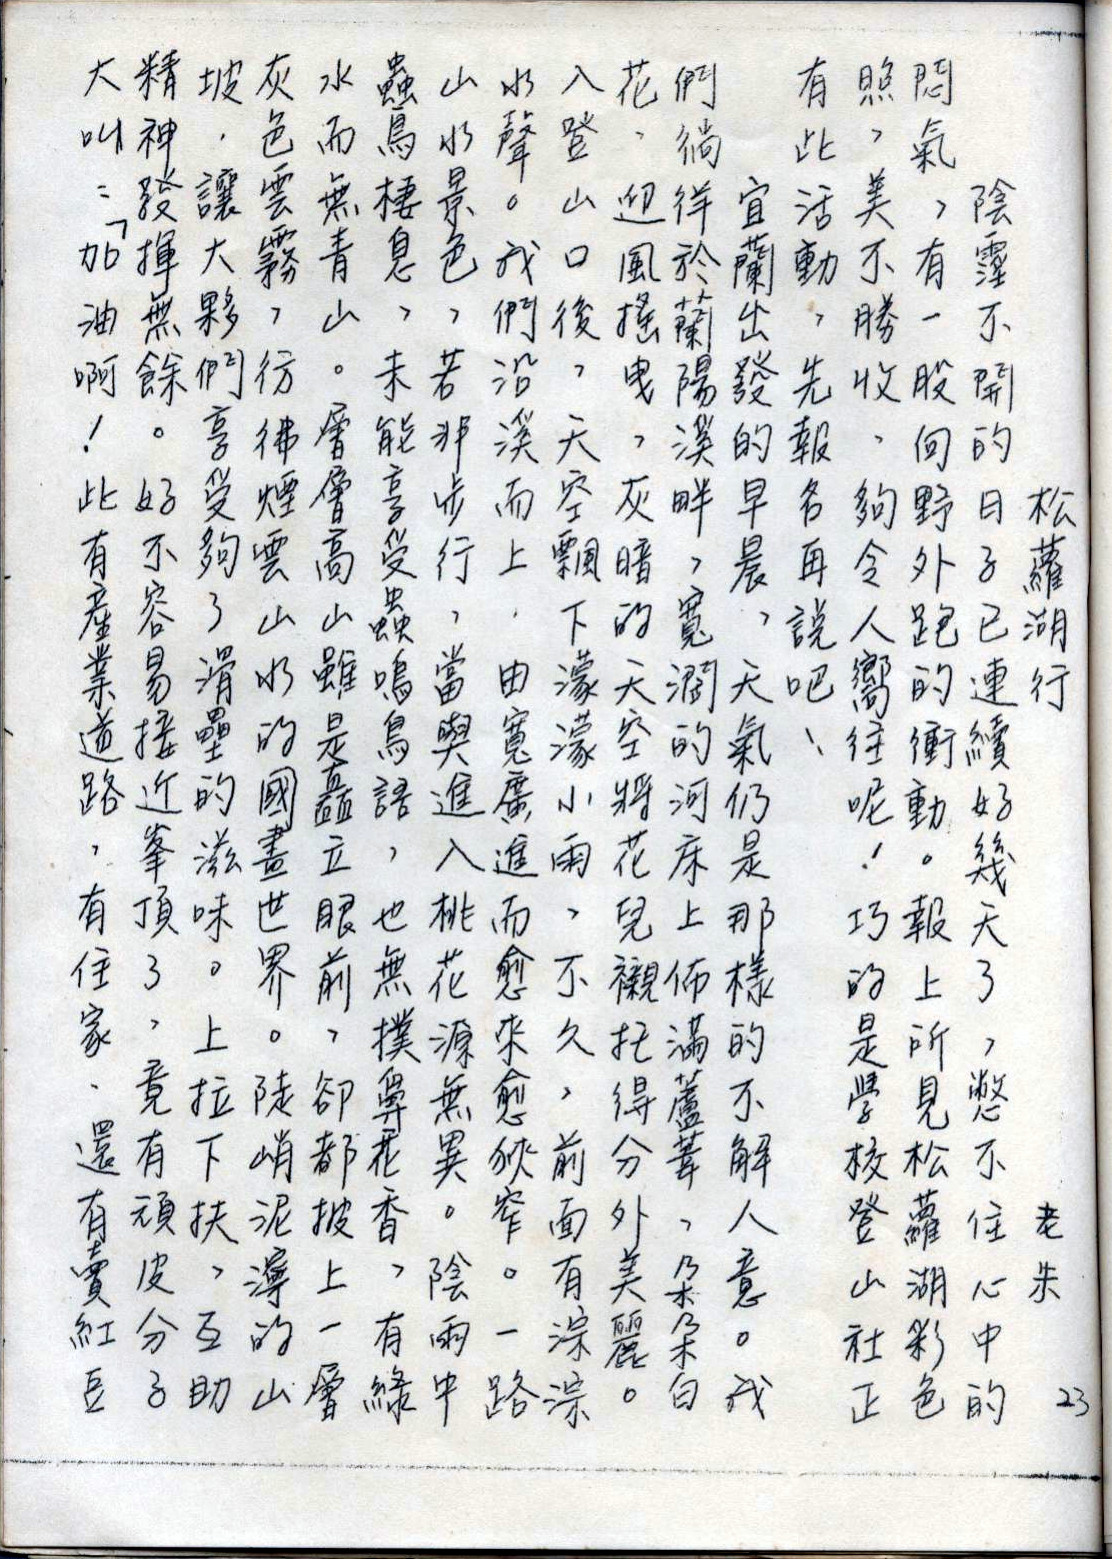 松蘿湖行 老朱 23
陰霪不開的日子已連續好幾天了，憋不住心中的
悶氣，有一股向野外跑的衝動。報上所見松蘿湖彩色
照，美不勝收，夠令人嚮往呢！巧的是學校登山社正
有此活動，先報名再說吧、
宜蘭出發的早晨，天氣仍是那樣的不解人意。我
們徜徉於蘭陽溪畔，寬濶的河床上佈滿蘆葦，朵朵白
花，迎風搖曳，灰暗的天空將花兒襯托得分外美麗。
入登山口後，天空飄下濛濛小雨，不久，前面有淙淙
水聲。我們沿溪而上．由寬廣進而愈來愈狹窄。一路
山水景色，若非步行，當與進入桃花源無異。陰雨中
蟲鳥棲息，未能享受蟲鳴鳥語，也無撲鼻花香，有綠
水而無青山。層層高山雖是矗立眼前，卻都披上一層
灰色雲霧，彷彿煙雲山水的國畫世界。陡峭泥濘的山
坡．讓大夥們享受夠了滑壘的滋味。上拉下扶，互助
精神發揮無餘。好不容易接近峯頂了，竟有頑皮分子
大叫：「加油啊！此有產業道路，有住家、還有賣紅豆